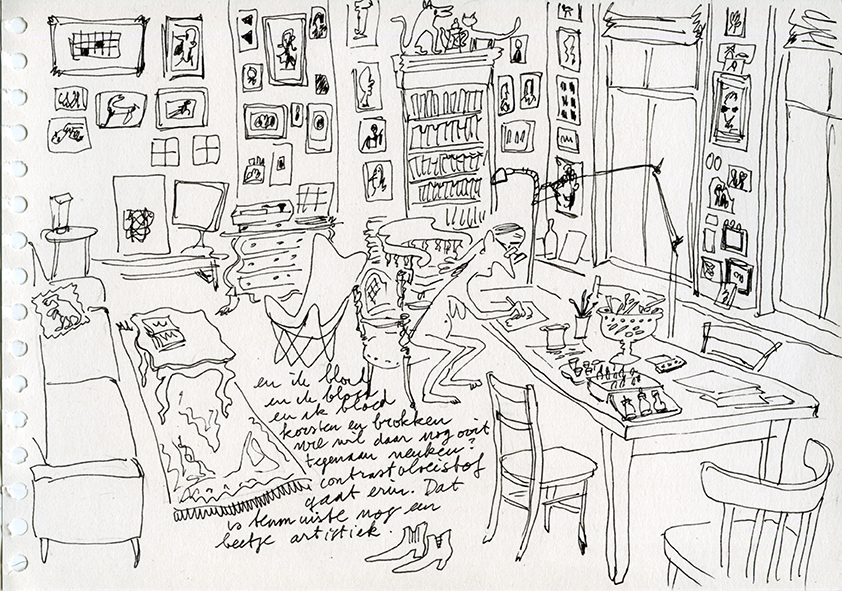 en ik bloed
en ik bloed
en ik bloed
korsten en brokken
wie wil daar nog ooit
tegenaan neuken?
contrastvloeistof
gaat erin. Dat
is tenminste nog een
beetje artistiek.